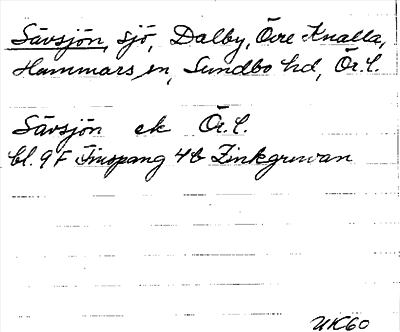 Sävsjön, sjö, Dalby, Övre Knalla,
Hammars sn, Sundbo hd, Ör.l.
Sävsjön ek Ör.l.
bl. 9F Finspång 4b Zinkgruvan
UK60